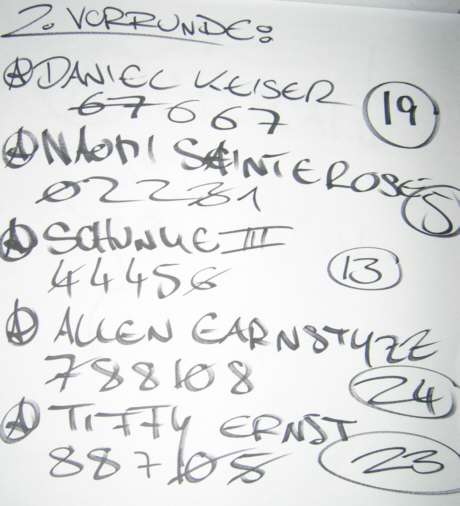 2. VORRUNDE:
Ⓐ DANIEL KEISER
67 667 19
Ⓐ NAOMI SAINTEROSES
02231 5
Ⓐ SCHUNKE III
44456 13
Ⓐ ALLEN EARNSTYZZ
788108 24
Ⓐ TIFFY ERNST
887105 23